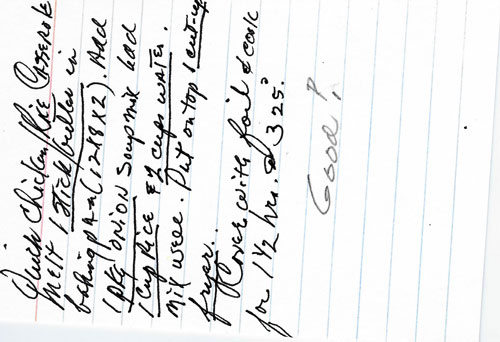 Quick Chicken/Rice Casserole
Melt 1 stick butter in
baking pan (12x8x2). Add
1 pkg onion soup mix add
1 cup rice & 2 cups water.
Mix well. Put on top 1 cut-up
fryer.
Cover with foil & cook
for 1 1/2 hrs. 325°.
Good!